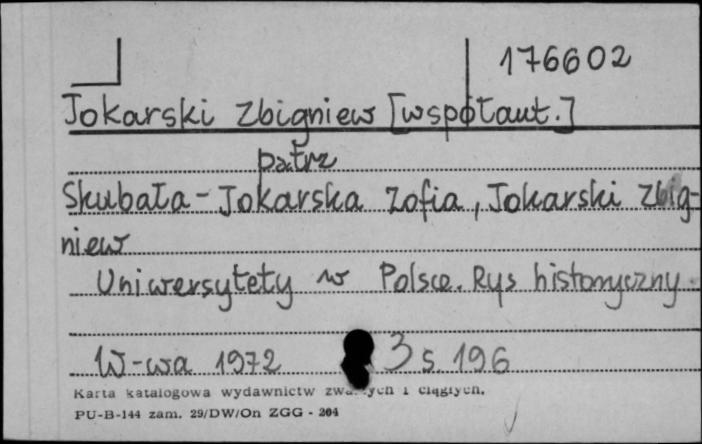 176602
Tokarski Zbigniew [współaut.]
patrz
Skubała-Tokarska Zofia, Tokarski Zbig-
niew
Uniwersytety w Polsce. Rys historyczny.
W-wa 1972 3 s. 196
Karta katalogowa wydawnictw i ciągłych.
PU-B-144 zam. 29/DW/On ZGG - 204